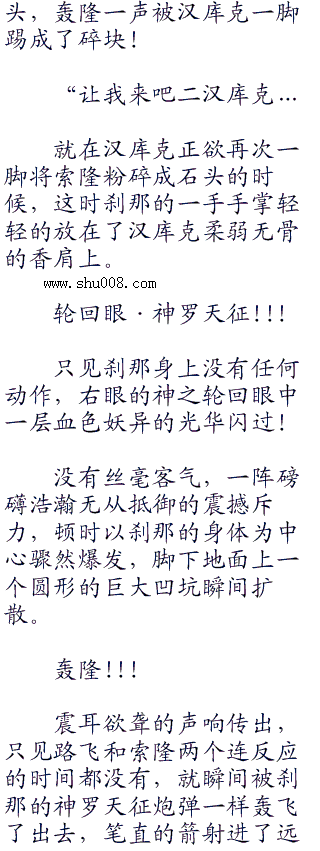 头，轰隆一声被汉库克一脚
踢成了碎块！
“让我来吧二汉库克…
就在汉库克正欲再次一
脚将索隆粉碎成石头的时
候，这时刹那的一手手掌轻
轻的放在了汉库克柔弱无骨
的香肩上。
www.shu008.com
轮回眼·神罗天征!!!
只见刹那身上没有任何
动作，右眼的神之轮回眼中
一层血色妖异的光华闪过！
没有丝毫客气，一阵磅
礴浩瀚无从抵御的震撼斥
力，顿时以刹那的身体为中
心骤然爆发，脚下地面上一
个圆形的巨大凹坑瞬间扩
散。
轰隆!!!
震耳欲聋的声响传出，
只见路飞和索隆两个连反应
的时间都没有，就瞬间被刹
那的神罗天征炮弹一样轰飞
了出去，笔直的箭射进了远